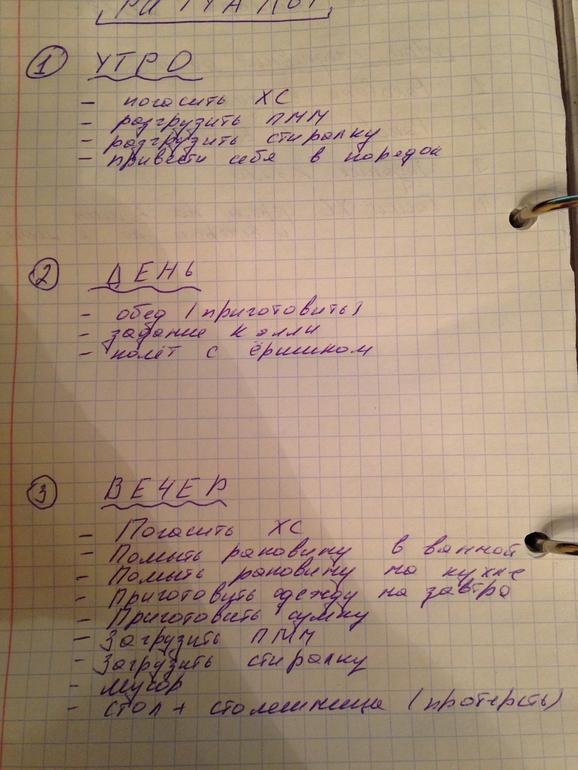 РИТУАЛЫ
1 УТРО
- погасить ХС
- разгрузить ПММ
- разгрузить стиралку
- привести себя в порядок
2 ДЕНЬ
- обед (приготовить)
- задание к элли
- полёт с ёршиком
3 ВЕЧЕР
- Погасить ХС
- Помыть раковину в ванной
- Помыть раковину на кухне
- Приготовить одежду на завтра
- Приготовить сумку
- Загрузить ПММ
- Загрузить стиралку
- мусор
- стол + столешница (протереть)